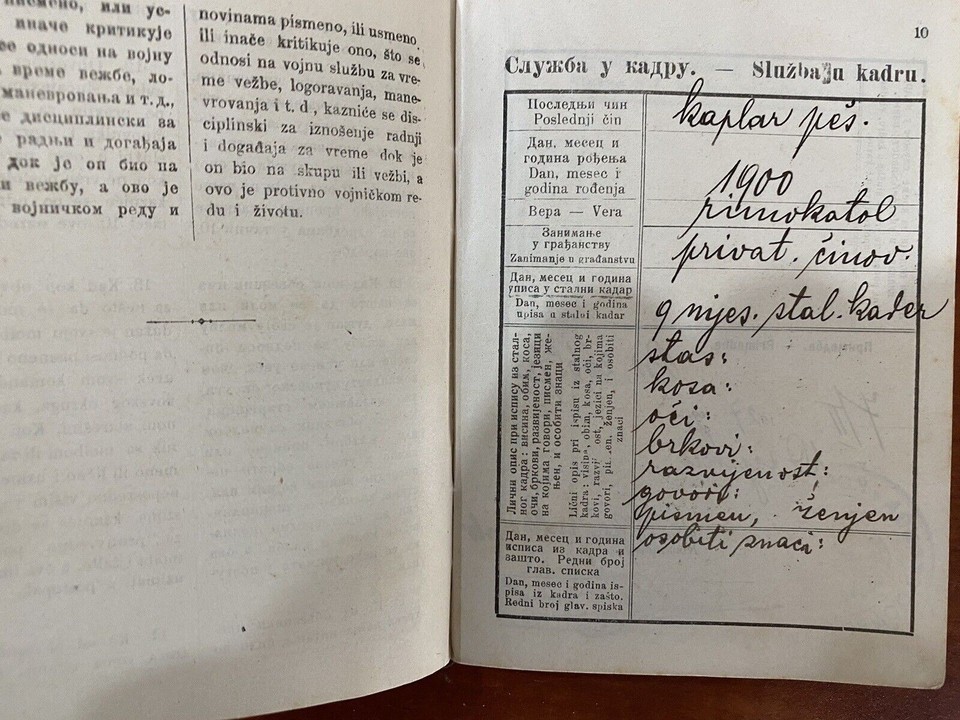 или ус-
иначе критикује
се односи на војну
време вежбе, ло-
маневровања и т.д.,
се дисциплински за
радњи и догађаја
док је он био на
и вежбу, а ово је
војничком реду и
novinama pismeno, ili usmeno
ili inače kritikuje ono, što se
odnosi na vojnu službu za vre-
me vežbe, logoravanja, mane-
vrovanja i t. d., kazniće se dis-
ciplinski za iznošenje radnji
i događaja za vreme dok je
on bio na skupu ili vežbi, a
ovo je protivno vojničkom re-
du i životu.
10
Служба у кадру. — Služba u kadru.
Последњи чин
Poslednji čin
kaplar peš.
Дан, месец и
година рођења
Dan, mesec i
godina rođenja
1900
Вера — Vera
rimokatol
Занимање
у грађанству
Zanimanje u građanstvu
privat. činov.
Дан, месец и година
уписа у стални кадар
Dan, mesec i godina
upisa u stalni kadar
9 mjes. stal. kader
Лични опис при испису из стал-
ног кадра: висина, обим, коса,
очи, бркови, развијеност, језици
на којима говори, писмен, же-
њен, и особити знаци
Lični opis pri ispisu iz stalnog
kadra: visina, obim, kosa, oči, br-
kovi, razvijenost, jezici na kojima
govori, pismen, ženjen i osobiti
znaci
stas:
kosa:
oči:
brkovi:
razvijenost:
govori:
pismen, ženjen
osobiti znaci:
Дан, месец и година
исписа из кадра и
зашто. Редни број
глав. списка
Dan, mesec i godina is-
pisa iz kadra i zašto.
Redni broj glav. spiska